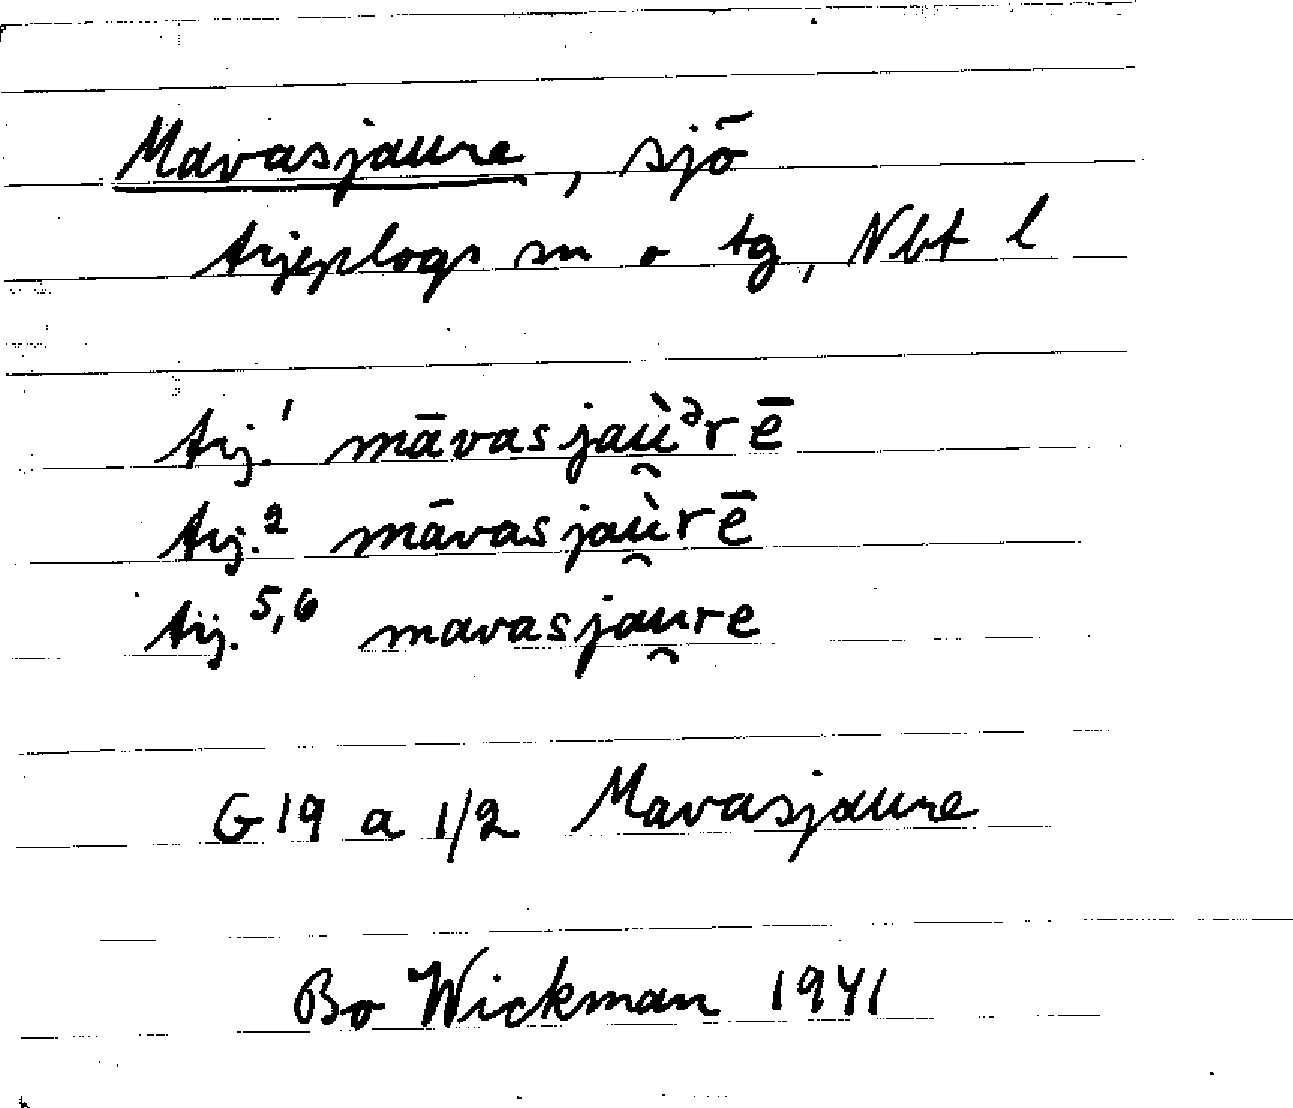 Mavasjaure, sjö
Arjeplogs sn o tg, Nbt l
Arj.¹ māvasjaù̯ᵊrē
Arj.² māvasjaù̯rē
Arj.⁵,⁶ mavasjau̯re
G19 a 1/2 Mavasjaure
Bo Wickman 1941